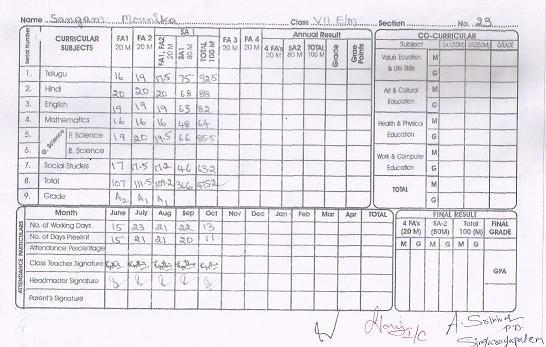 Name Sangam Mounika Class VII E/m Section No. 23
Serial Number CURRICULAR SUBJECTS FA1 20 M FA 2 20 M SA 1 FA1, FA2 20 M SA1 80 M TOTAL 100 M FA 3 20 M FA 4 20 M Annual Result 4 FA's 20 M SA2 80 M TOTAL 100 M Grade Grae Points
CO-CURRICULAR
Subject SA1(50M) SA2(50M) GRADE
1. Telugu 16 19 17.5 75 92.5
2. Hindi 20 20 20 68 88
3. English 19 19 19 63 82
4. Mathematics 16 16 16 48 64
5. G. Science P. Science 19 20 19.5 66 85.5
6. B. Science
7. Social Studies 17 17.5 17.2 46 63.2
8. Total 107 111.5 109.2 366 475.2
9. Grade A2 A1 A1
Value Eucation & Life Skills M G
Art & Cultural Education M G
Health & Physical Education M G
Work & Computer Education M G
TOTAL M G
ATTENDANCE PARTICULARS
Month June July Aug Sep Oct Nov Dec Jan Feb Mar Apr TOTAL
No. of Working Days 15 23 21 22 13
No. of Days Present 15 21 21 20 11
Attendance Percentage
Class Teacher Signature
Headmaster Signature
Parent's Signature
FINAL RESULT
4 FA's (20 M) SA-2 (80M) Total 100 (M) FINAL GRADE
M G M G M G
GPA
I/C
P.D